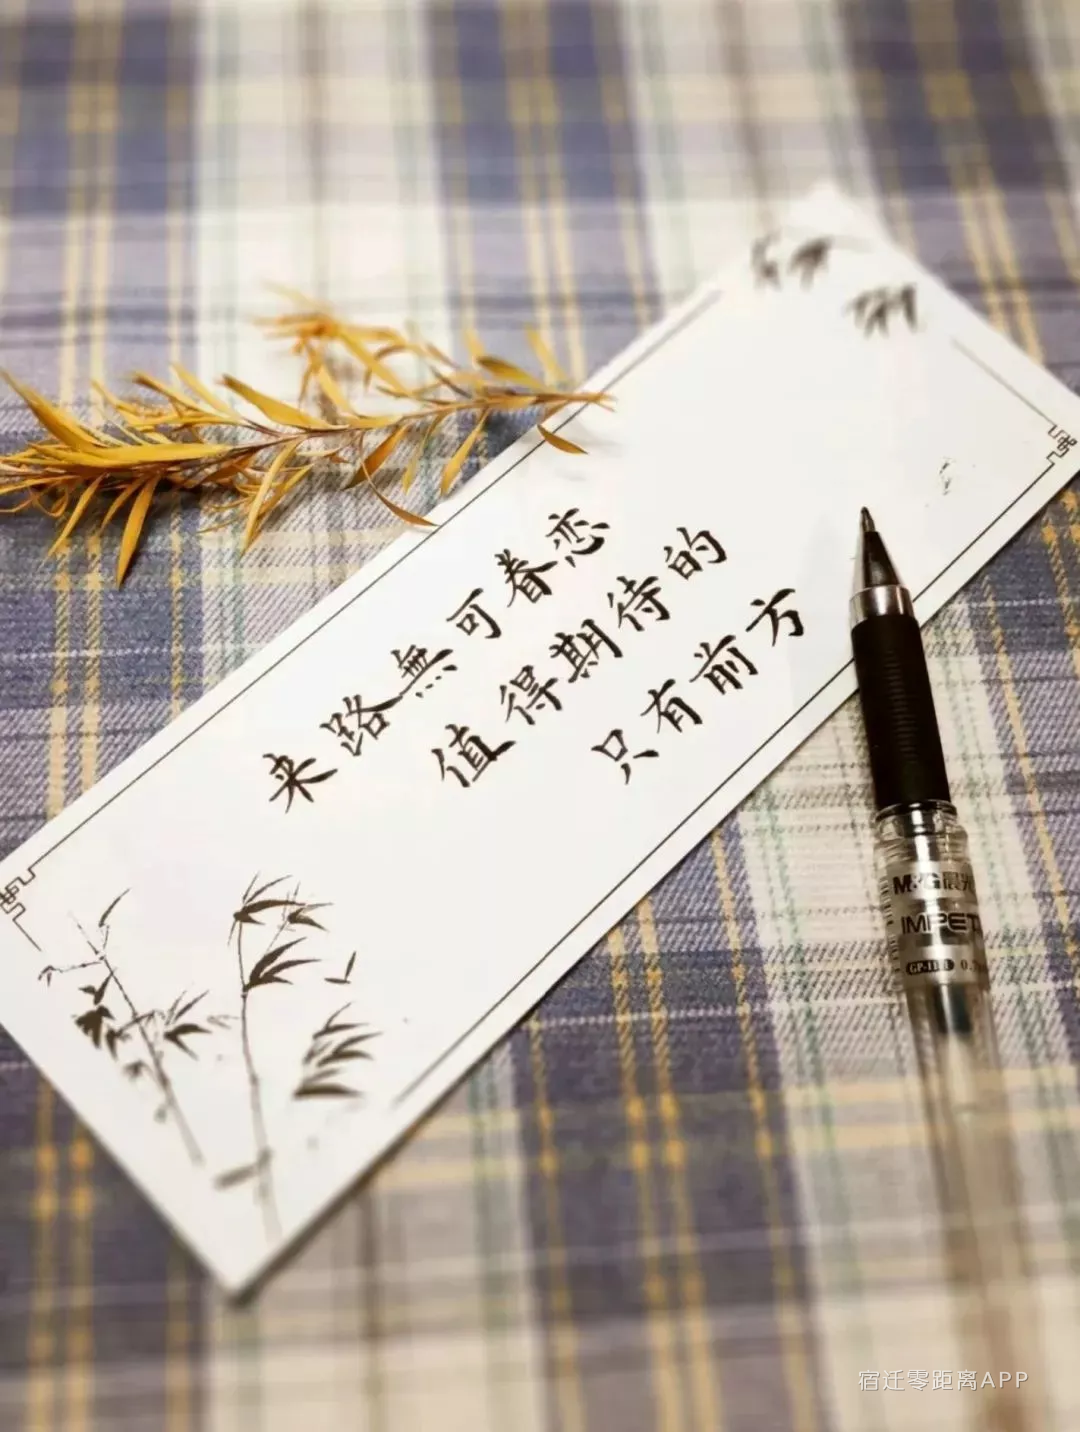 来路無可眷恋
值得期待的
只有前方
M&G晨光
IMPET
0.7
宿迁零距离APP